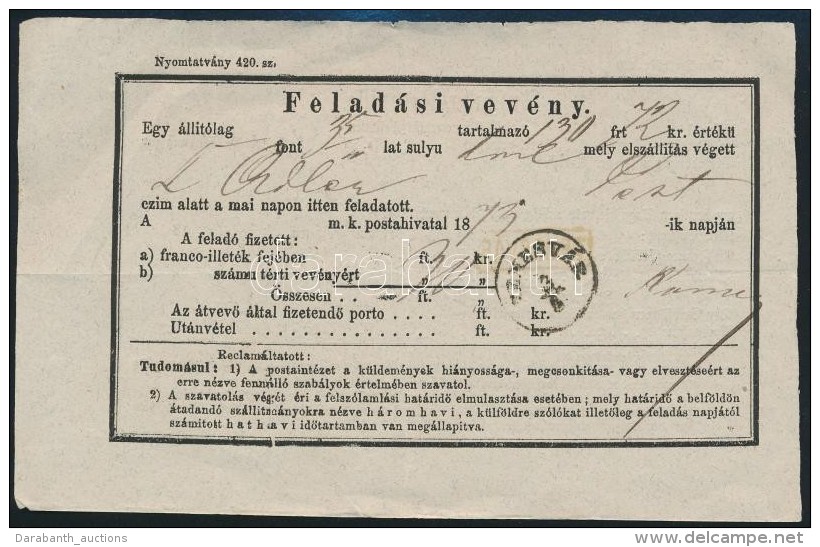 Nyomtatvány 420. sz.
Feladási vevény.
Egy állitólag tartalmazó 130 frt 72 kr. értékü
font 35 lat sulyu mely elszállitás végett
L Adler Pest
czim alatt a mai napon itten feladatott.
A m. k. postahivatal 1873 -ik napján
A feladó fizetett:
a) franco-illeték fejében ft. kr.
b) számu térti vevényért „ „
Összesen . . ft. „
Az átvevő által fizetendő porto . . . . ft. kr.
Utánvétel . . . . . . . . . . . . . . ft. kr.
Reclamáltatott:
Tudomásul: 1) A postaintézet a küldemények hiányossága-, megcsonkitása- vagy elvesztéseért az
erre nézve fennálló szabályok értelmében szavatol.
2) A szavatolás végét éri a felszólamlási határidő elmulasztása esetében; mely határidő a belföldön
átadandó szállitmányokra nézve háromhavi, a külföldre szólókat illetőleg a feladás napjától
számitott hathavi időtartamban van megállapitva.
darabanth
Darabanth_auctions
delcampe.net